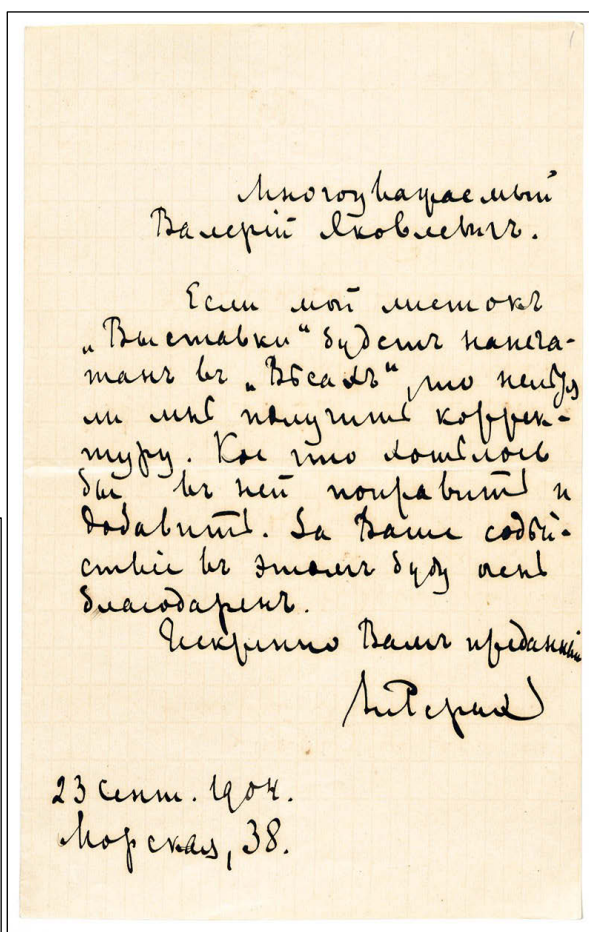 Многоуважаемый
Валерій Яковлевичъ.
Если мой листокъ
„Выставки“ будетъ напеча-
танъ въ „Вѣсахъ“, то нельзя
ли мнѣ получить коррек-
туру. Кое что хотѣлось
бы въ ней поправить и
добавить. За Ваше содѣй-
ствіе въ этомъ буду очень
благодаренъ.
Искренно Вамъ преданный
Н. Рерих
23 сент. 1904.
Морская, 38.